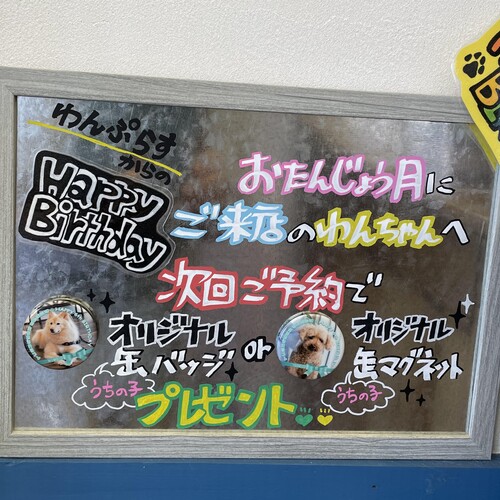 わんぷらす
からの
Happy
Birthday
おたんじょう月に
ご来店のわんちゃんへ
次回ご予約で
オリジナル
缶バッジ
うちの子
or
オリジナル
缶マグネット
うちの子
プレゼント